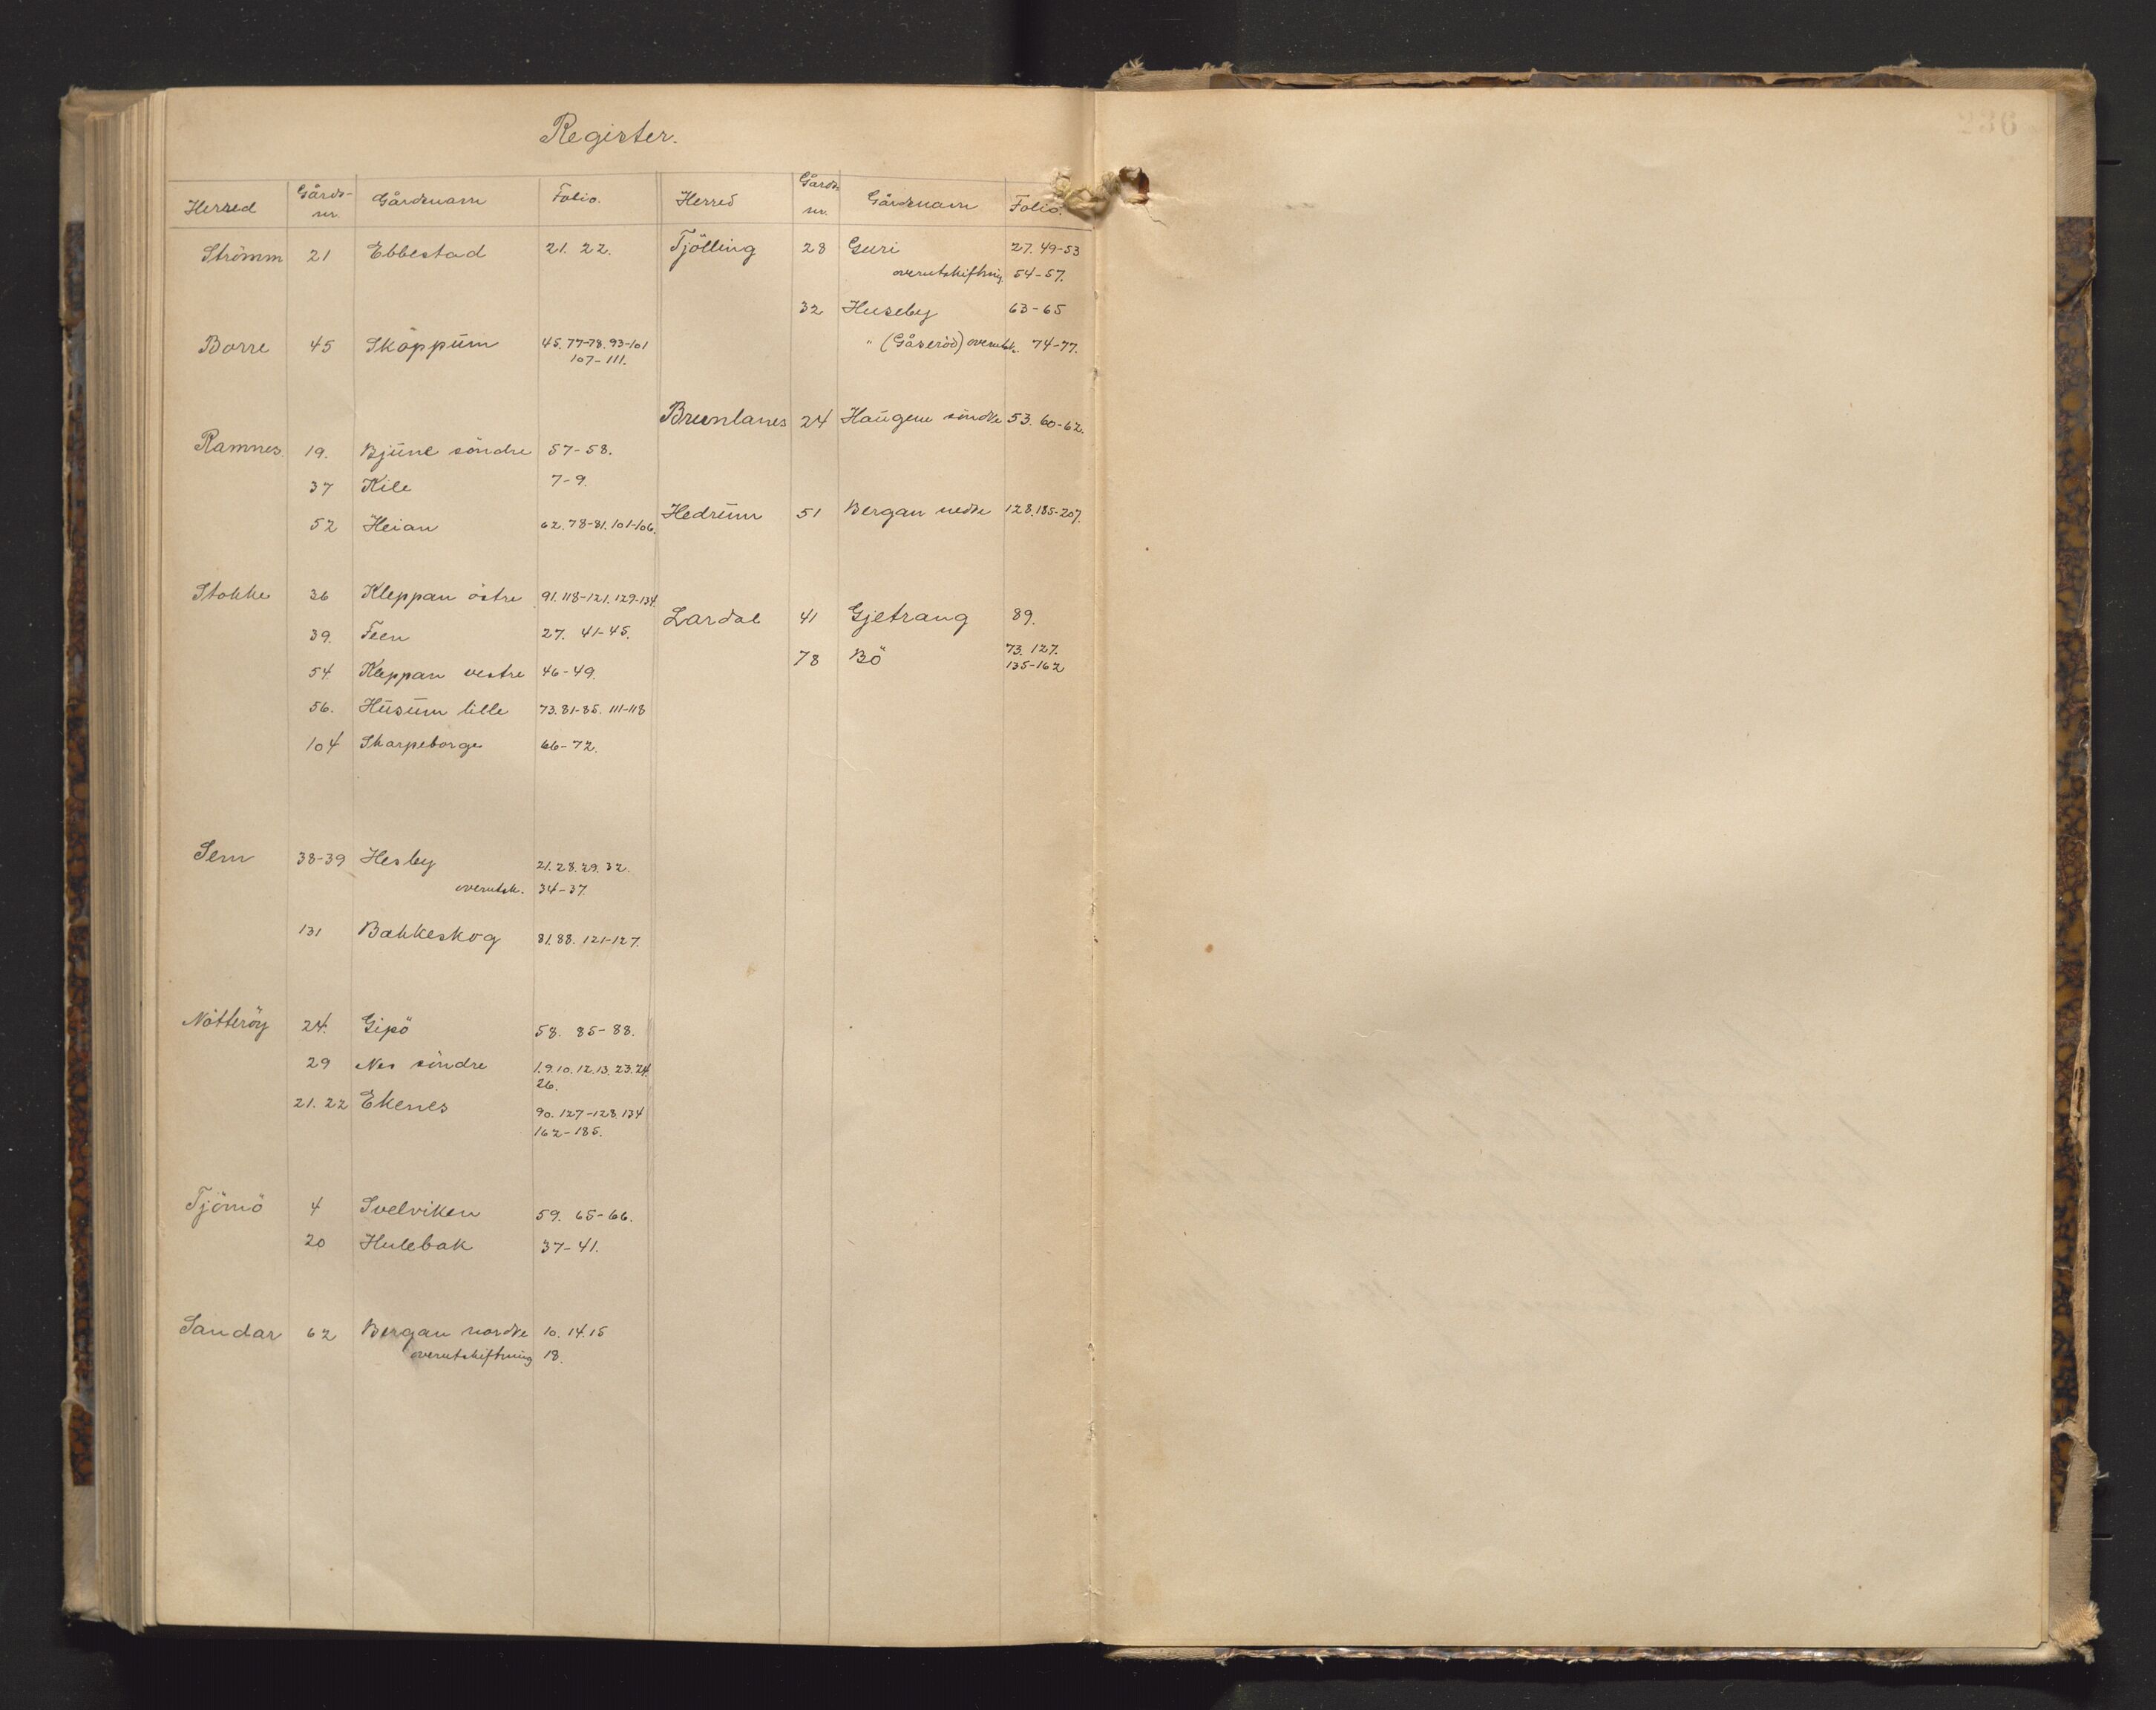 Register.
Herred Gårds-nr. Gårdsnavn Folio.
Strömm 21 Ebbestad 21. 22.
Borre 45 Skoppum 45. 77-78. 93-101
107-111.
Ramnes. 19. Bjune söndre 57-58.
37 Kile 7-9.
52 Heian 62. 78-81. 101-106.
Stokke 36 Kleppan östre 91. 118-121. 129-134.
39. Feen 27. 41-45.
54 Kleppan vestre 46-49.
56. Husum lille 73. 81-85. 111-118
104 Skarpeborge 66-72.
Sem 38-39 Hesby 21. 28. 29. 32.
overutsk. 34-37.
131 Bakkeskog 81. 88. 121-127.
Nötteröy 24. Gipö 58. 85-88.
29 Nes söndre 1. 9. 10. 12. 13. 23. 24.
26.
21. 22 Ekenes 90. 127-128. 134
162-185.
Tjömö 4 Svelviken 59. 65-66.
20 Hulebak 37-41.
Sandar 62 Bergan nordre 10. 14. 15
overutskiftning 18.
Herred Gårds nr. Gårdsnavn Folio.
Tjölling 28 Guri 27. 49-53
overutskiftning. 54-57.
32 Huseby 63-65
" (Gåseröd) overutsk. 74-77.
Brunlanes 24 Haugene söndre 53. 60-62.
Hedrum 51 Bergan nedre 128. 185-207.
Lardal 41 Gjetrang 89.
78 Bö 73. 127.
135-162